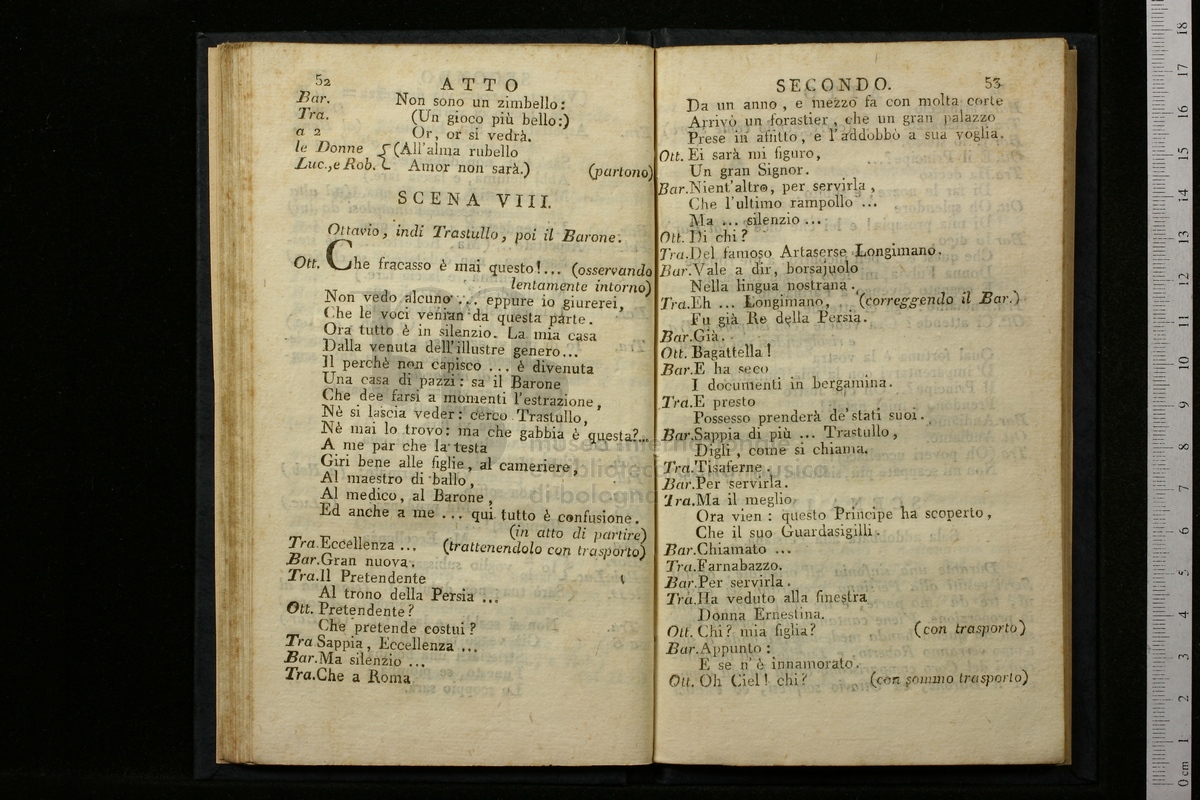 52 ATTO
Bar. Non sono un zimbello:
Tra. (Un gioco più bello:)
a 2 Or, or si vedrà.
le Donne (All'alma rubello
Luc., e Rob. Amor non sarà.) (partono)
SCENA VIII.
Ottavio, indi Trastullo, poi il Barone.
Ott. Che fracasso è mai questo!... (osservando
lentamente intorno)
Non vedo alcuno ... eppure io giurerei,
Che le voci venian da questa parte.
Ora tutto è in silenzio. La mia casa
Dalla venuta dell'illustre genero...
Il perchè non capisco ... è divenuta
Una casa di pazzi: sa il Barone
Che dee farsi a momenti l'estrazione,
Nè si lascia veder: cerco Trastullo,
Nè mai lo trovo: ma che gabbia è questa?...
A me par che la testa
Giri bene alle figlie, al cameriere,
Al maestro di ballo,
Al medico, al Barone,
Ed anche a me ... qui tutto è confusione.
(in atto di partire)
Tra. Eccellenza ... (trattenendolo con trasporto)
Bar. Gran nuova.
Tra. Il Pretendente
Al trono della Persia ...
Ott. Pretendente?
Che pretende costui?
Tra Sappia, Eccellenza ...
Bar. Ma silenzio ...
Tra. Che a Roma
SECONDO. 53
Da un anno, e mezzo fa con molta corte
Arrivò un forastier, che un gran palazzo
Prese in affitto, e l'addobbò a sua voglia.
Ott. Ei sarà mi figuro,
Un gran Signor.
Bar. Nient'altro, per servirla,
Che l'ultimo rampollo ...
Ma ... silenzio ...
Ott. Di chi?
Tra. Del famoso Artaserse Longimano.
Bar. Vale a dir, borsajuolo
Nella lingua nostrana.
Tra. Eh ... Longimano, (correggendo il Bar.)
Fu già Re della Persia.
Bar. Già.
Ott. Bagattella!
Bar. E ha seco
I documenti in bergamina.
Tra. E presto
Possesso prenderà de' stati suoi.
Bar. Sappia di più ... Trastullo,
Digli, come si chiama.
Tra. Tisaferne.
Bar. Per servirla.
Tra. Ma il meglio
Ora vien: questo Principe ha scoperto,
Che il suo Guardasigilli.
Bar. Chiamato ...
Tra. Farnabazzo.
Bar. Per servirla.
Tra. Ha veduto alla finestra
Donna Ernestina.
Ott. Chi? mia figlia? (con trasporto)
Bar. Appunto:
E se n'è innamorato.
Ott. Oh Ciel! chi? (con sommo trasporto)
museo internazionale
e biblioteca della musica
di bologna
0 cm 1 2 3 4 5 6 7 8 9 10 11 12 13 14 15 16 17 18